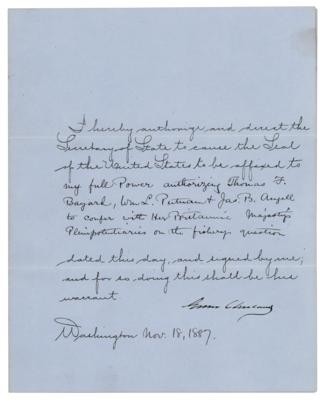 I hereby authorize and direct the
Secretary of State to cause the Seal
of the United States to be affixed to
my full Power authorizing Thomas F.
Bayard, Wm L. Putnam & Jas. B. Angell
to confer with Her Britannic Majesty's
Plenipotentiaries on the fishery question
dated this day, and signed by me;
and for so doing this shall be his
warrant
Grover Cleveland
Washington Nov. 18, 1887.